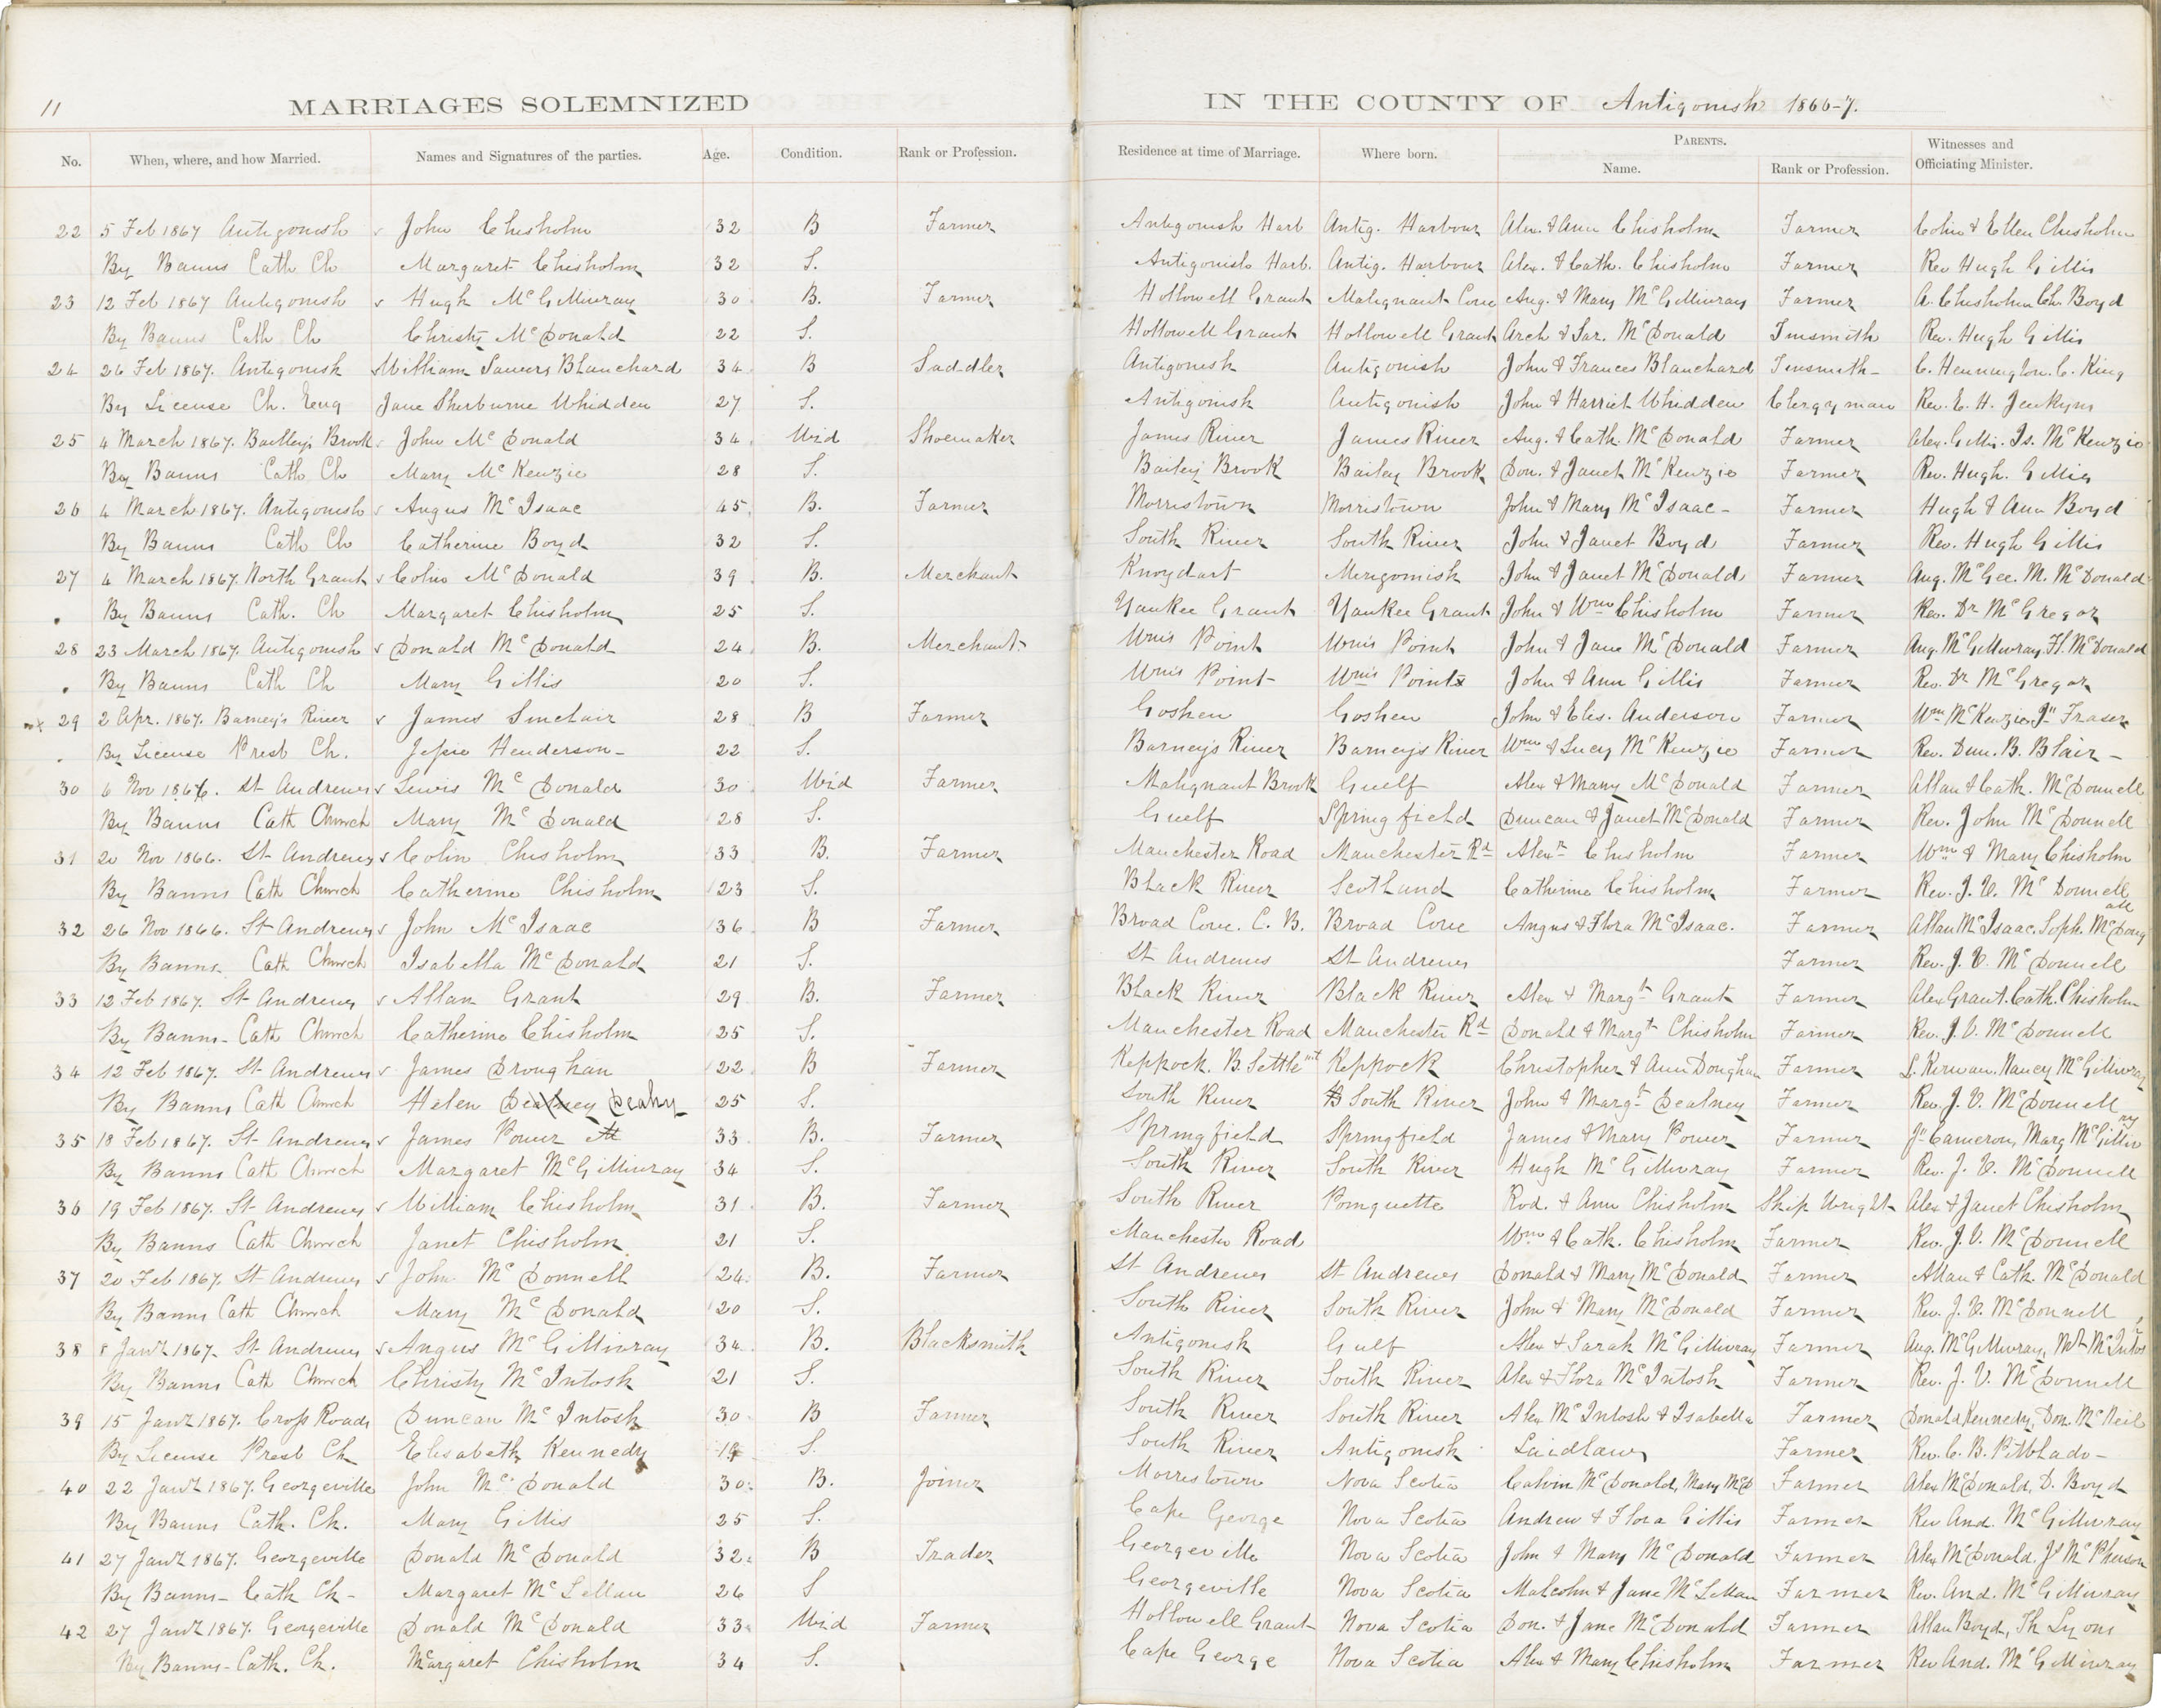 11 MARRIAGES SOLEMNIZED IN THE COUNTY OF Antigonish 1866-7.
No. When, where, and how Married. Names and Signatures of the parties. Age. Condition. Rank or Profession. Residence at time of Marriage. Where born. PARENTS. Name. Rank or Profession. Witnesses and Officiating Minister.
22 5 Feb 1867 Antigonish John Chisholm 32 B Farmer Antigonish Harb Antig. Harbour Alex. & Ann Chisholm Farmer Colin & Ellen Chisholm
By Banns Cath Ch Margaret Chisholm 32 S. Antigonish Harb. Antig. Harbour Alex. & Cath. Chisholm Farmer Rev Hugh Gillis
23 12 Feb 1867 Antigonish Hugh McGillivray 30 B. Farmer Hollowell Grant Malignant Cove Ang. & Mary McGillivray Farmer A. Chisholm Ch. Boyd
By Banns Cath Ch Christy McDonald 22 S. Hollowell Grant Hollowell Grant Arch & Sar. McDonald Tinsmith Rev. Hugh Gillis
24 26 Feb 1867. Antigonish William Sawers Blanchard 34 B Saddler Antigonish Antigonish John & Frances Blanchard Tinsmith C. Hennington. C. King
By License Ch. Eng Jane Sherburne Whidden 27 S. Antigonish Antigonish John & Harriet Whidden Clergyman Rev. E. H. Jenkyns
25 4 March 1867. Bailley's Brook John McDonald 34 Wid Shoemaker James River James River Ang. & Cath. McDonald Farmer Alex. Gillis. Is. McKenzie
By Banns Cath Ch Mary McKenzie 28 S. Bailey Brook Bailey Brook Don. & Janet McKenzie Farmer Rev. Hugh. Gillis
26 4 March 1867. Antigonish Angus McIsaac 45 B. Farmer Morristown Morristown John & Mary McIsaac - Farmer Hugh & Ann Boyd
By Banns Cath Ch Catherine Boyd 32 S. South River South River John & Janet Boyd Farmer Rev. Hugh Gillis
27 4 March 1867. North Grant Colin McDonald 39 B. Merchant Knoydart Merigomish John & Janet McDonald Farmer Ang. McGee. M. McDonald
By Banns Cath. Ch Margaret Chisholm 25 S. Yankee Grant Yankee Grant John & Wm Chisholm Farmer Rev. Dr McGregor
28 23 March 1867. Antigonish Donald McDonald 24 B. Merchant Wm's Point Wm's Point John & Jane McDonald Farmer Ang. McGillivray. Fl. McDonald
By Banns Cath Ch Mary Gillis 20 S. Wm's Point Wm's Point John & Ann Gillis Farmer Rev. Dr McGregor
29 2 Apr. 1867. Barney's River James Sinclair 28 B Farmer Goshen Goshen John & Elis. Anderson Farmer Wm McKenzie, Jn Fraser
By License Presb Ch. Jessie Henderson 22 S. Barney's River Barney's River Wm & Lucy McKenzie Farmer Rev. Dun. B. Blair
30 6 Nov 1866. St Andrews Lewis McDonald 30 Wid Farmer Malignant Brook Guelf Alex & Mary McDonald Farmer Allan & Cath. McDonnell
By Banns Cath Church Mary McDonald 28 S. Guelf Springfield Duncan & Janet McDonald Farmer Rev. John McDonnell
31 20 Nov 1866. St Andrews Colin Chisholm 33 B. Farmer Manchester Road Manchester Rd Alexr Chisholm Farmer Wm & Mary Chisholm
By Banns Cath Church Catherine Chisholm 23 S. Black River Scotland Catherine Chisholm Farmer Rev. J. V. McDonnell
32 26 Nov 1866. St Andrews John McIsaac 36 B Farmer Broad Cove. C. B. Broad Cove Angus & Flora McIsaac. Farmer Allan McIsaac. Soph. McDougall
By Banns. Cath Church Isabella McDonald 21 S. St Andrews St Andrews Farmer Rev. J. V. McDonnell
33 12 Feb 1867. St Andrews Allan Grant 29 B. Farmer Black River Black River Alex & Margt Grant Farmer Alex Grant. Cath. Chisholm
By Banns - Cath Church Catherine Chisholm 25 S. Manchester Road Manchester Rd Donald & Margt Chisholm Farmer Rev. J. V. McDonnell
34 12 Feb 1867. St Andrews James Droughan 22 B Farmer Keppock. B. Settlemt Keppock Christopher & Ann Doughan Farmer L. Kirwan. Nancy McGillivray
By Banns Cath Church Helen Dealney Deahy 25 S. South River South River John & Margt Dealney Farmer Rev. J. V. McDonnell
35 18 Feb 1867. St Andrews James Power 33 B. Farmer Springfield Springfield James & Mary Power Farmer Jn Cameron, Marg McGillivray
By Banns Cath Church Margaret McGillivray 34 S. South River South River Hugh McGillivray Farmer Rev. J. V. McDonnell
36 19 Feb 1867. St Andrews William Chisholm 31 B. Farmer South River Pomquette Rod. & Ann Chisholm Ship Wright Alex & Janet Chisholm
By Banns Cath Church Janet Chisholm 21 S. Manchester Road Wm & Cath. Chisholm Farmer Rev. J. V. McDonnell
37 20 Feb 1867. St Andrews John McDonnell 24 B. Farmer St Andrews St Andrews Donald & Mary McDonald Farmer Allan & Cath. McDonald
By Banns Cath Church Mary McDonald 20 S. South River South River John & Mary McDonald Farmer Rev. J. V. McDonnell
38 8 Jany 1867. St Andrews Angus McGillivray 34 B. Blacksmith Antigonish Gulf Alex & Sarah McGillivray Farmer Ang. McGillivray, McIntos
By Banns Cath Church Christy McIntosh 21 S. South River South River Alex & Flora McIntosh Farmer Rev. J. V. McDonnell
39 15 Jany 1867. Cross Roads Duncan McIntosh 30 B Farmer South River South River Alex McIntosh & Isabella Farmer Donald Kennedy, Don. McNeil
By License Presb Ch Elisabeth Kennedy 19 S. South River Antigonish Laidlaw Farmer Rev. C. B. Pitblado -
40 22 Jany 1867. Georgeville John McDonald 30 B. Joiner Morristown Nova Scotia Calvin McDonald, Mary McD Farmer Alex McDonald, D. Boyd
By Banns Cath. Ch. Mary Gillis 25 S. Cape George Nova Scotia Andrew & Flora Gillis Farmer Rev And. McGillivray
41 27 Jany 1867. Georgeville Donald McDonald 32 B Trader Georgeville Nova Scotia John & Mary McDonald Farmer Alex McDonald. Js McPherson
By Banns - Cath Ch - Margaret McLellan 26 S Georgeville Nova Scotia Malcolm & Jane McLellan Farmer Rev. And. McGillivray
42 27 Jany 1867. Georgeville Donald McDonald 33 Wid Farmer Hollowell Grant Nova Scotia Don. & Jane McDonald Farmer Allan Boyd, Th Lyons
By Banns - Cath. Ch. Margaret Chisholm 34 S. Cape George Nova Scotia Alex & Mary Chisholm Farmer Rev And. McGillivray